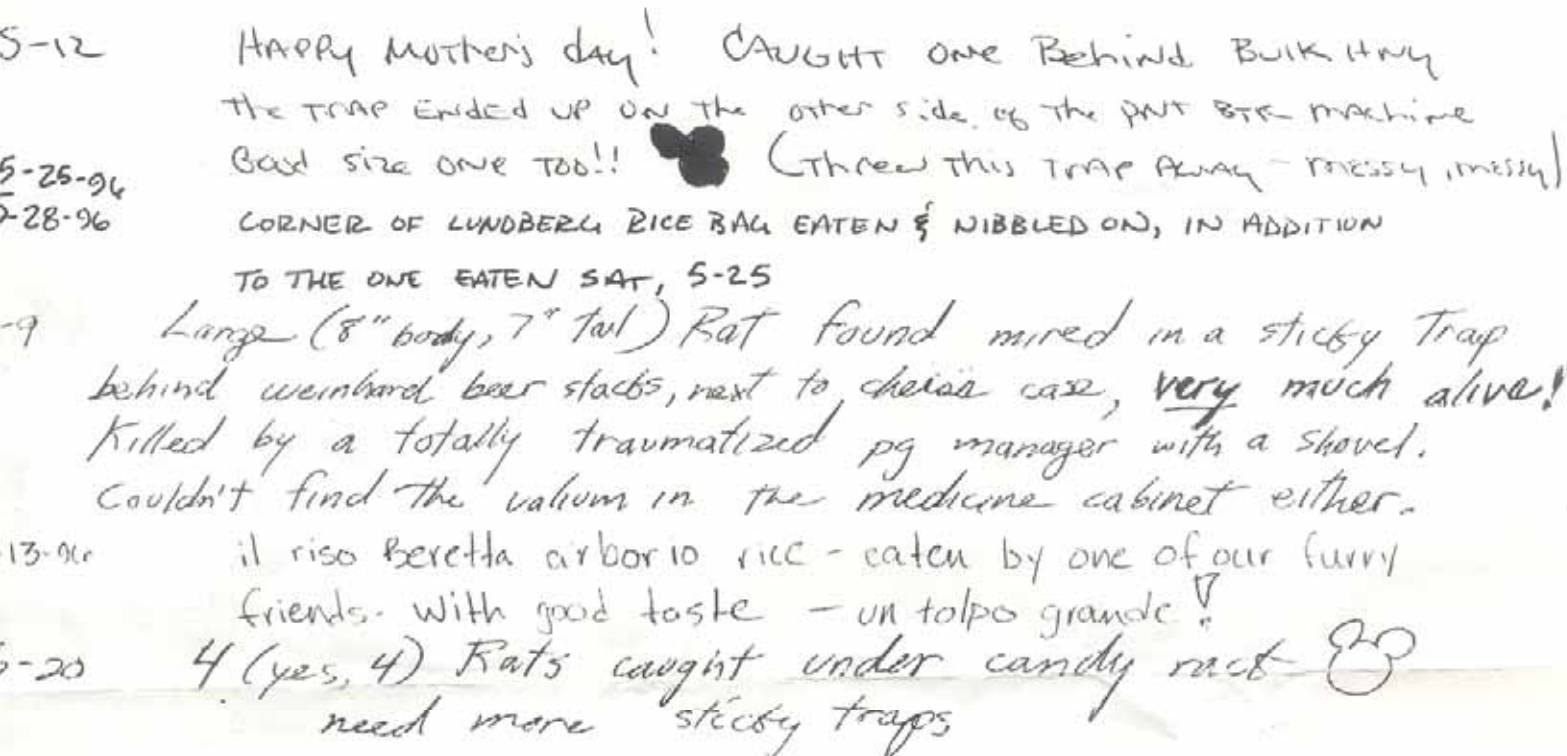 5-12 HAPPy MoTher's dAy! CAUGHT ONe Behind BulK HNy
The TrAP ENded UP ON The other side of The PNT BTR mAchine
Good size ONe TOO!! (Threw This TrAP AWAy - messy, messy)
5-25-96
-28-96 CORNER OF LUNDBERG RICE BAG EATEN & NIBBLED ON, IN ADDITION
TO THE ONE EATEN SAT, 5-25
-9 Large (8" body, 7" tail) Rat found mired in a sticky Trap
behind weinhard beer stacks, next to cheise case, very much alive!
Killed by a totally traumatized pg manager with a shovel.
Couldn't find the valium in the medicine cabinet either.
-13-96 il riso Beretta arborio rice - eaten by one of our furry
friends. With good taste - un tolpo grande!
6-20 4 (yes, 4) Rats caught under candy rack
need more sticky traps